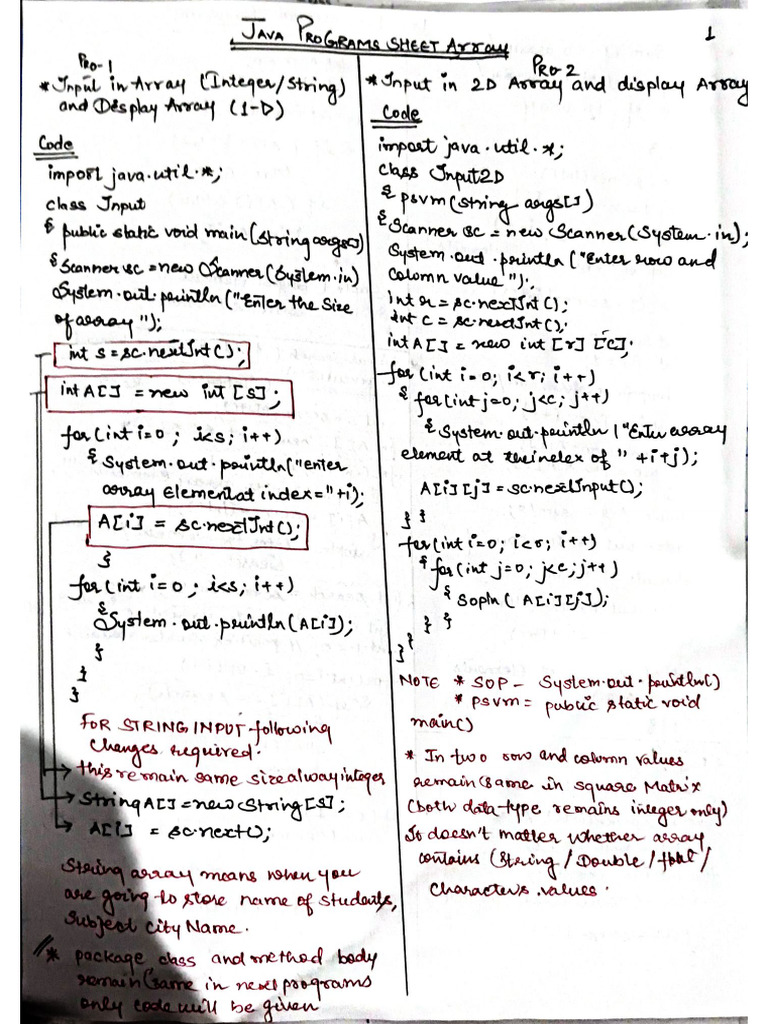 JAVA PROGRAMS SHEET Array
1
Pro-1
* Input in Array (Integer/String)
and Display Array (1-D)
Code
import java.util.*;
class Input
{ public static void main(String args[])
{ Scanner sc = new Scanner(System.in)
System.out.println("Enter the Size
of array");
int s = sc.nextInt();
int A[] = new int [s];
for(int i=0; i<s; i++)
{ System.out.println("enter
array Element at index="+i);
A[i] = sc.nextInt();
}
for(int i=0; i<s; i++)
{
System.out.println(A[i]);
}
}
}
FOR STRING INPUT following
changes required.
→ this remain same size alway integer
→ String A[] = new String[s];
→ A[i] = sc.next();
String array means when you
are going to store name of students,
subject city Name.
* package class and method body
remain same in next programs
only code will be given
PRO-2
* Input in 2D Array and display Array
Code
import java.util.*;
class Input2D
{ psvm(String args[])
{ Scanner sc = new Scanner(System.in);
System.out.println("Enter row and
column value");
int r = sc.nextInt();
int c = sc.nextInt();
int A[] = new int [r] [c];
for(int i=0; i<r; i++)
{ for(int j=0; j<c; j++)
{ System.out.println("Enter array
element at the index of " +i+j);
A[i][j] = sc.nextInput();
} }
for(int i=0; i<r; i++)
{ for(int j=0; j<c; j++)
{ Sopln( A[i][j]);
} }
}
}
NOTE * SOP - System.out.println()
* psvm = public static void
main()
* In two row and column values
remain same in square Matrix
(both data-type remains integer only)
It doesn't matter whether array
contains (String / Double / float /
characters values.